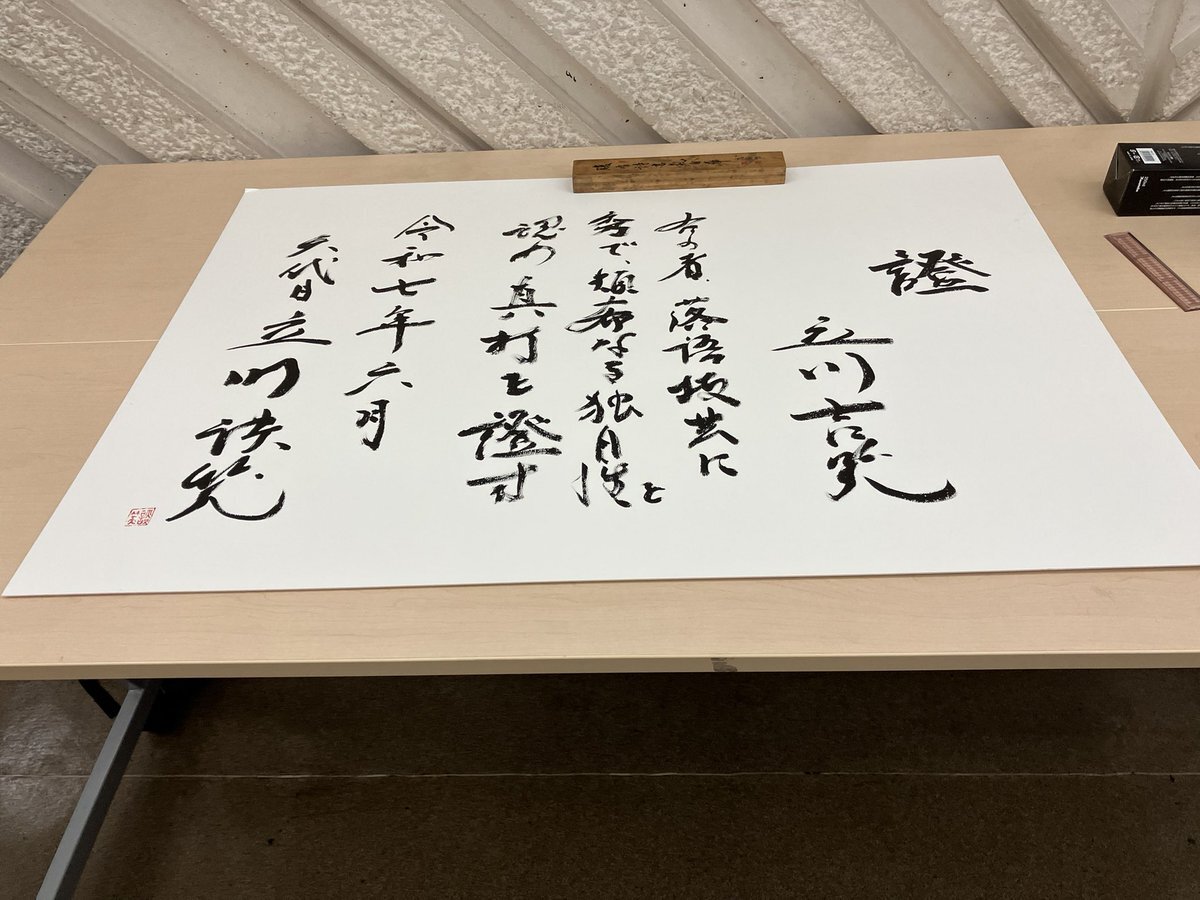 證
立川吉笑
右の者、落語技芸に
秀で、類希なる独自性を
認め真打を證す
令和七年六月
六代目立川談笑